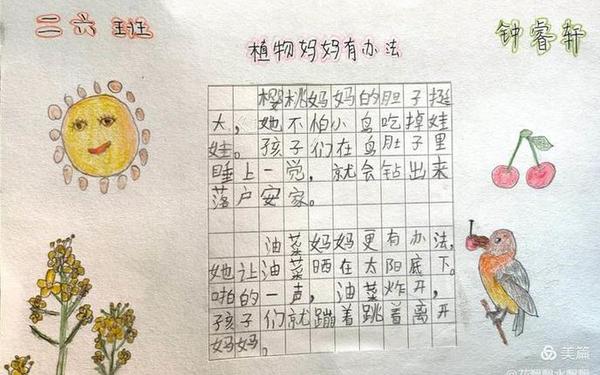 二六班
植物妈妈有办法
钟睿轩
樱桃妈妈的胆子挺
大，她不怕小鸟吃掉娃
娃。孩子们在鸟肚子里
睡上一觉，就会钻出来
落户安家。
油菜妈妈更有办法，
她让油菜晒在太阳底下。
啪的一声，油菜炸开，
孩子们就蹦着跳着离开
妈妈。
美篇